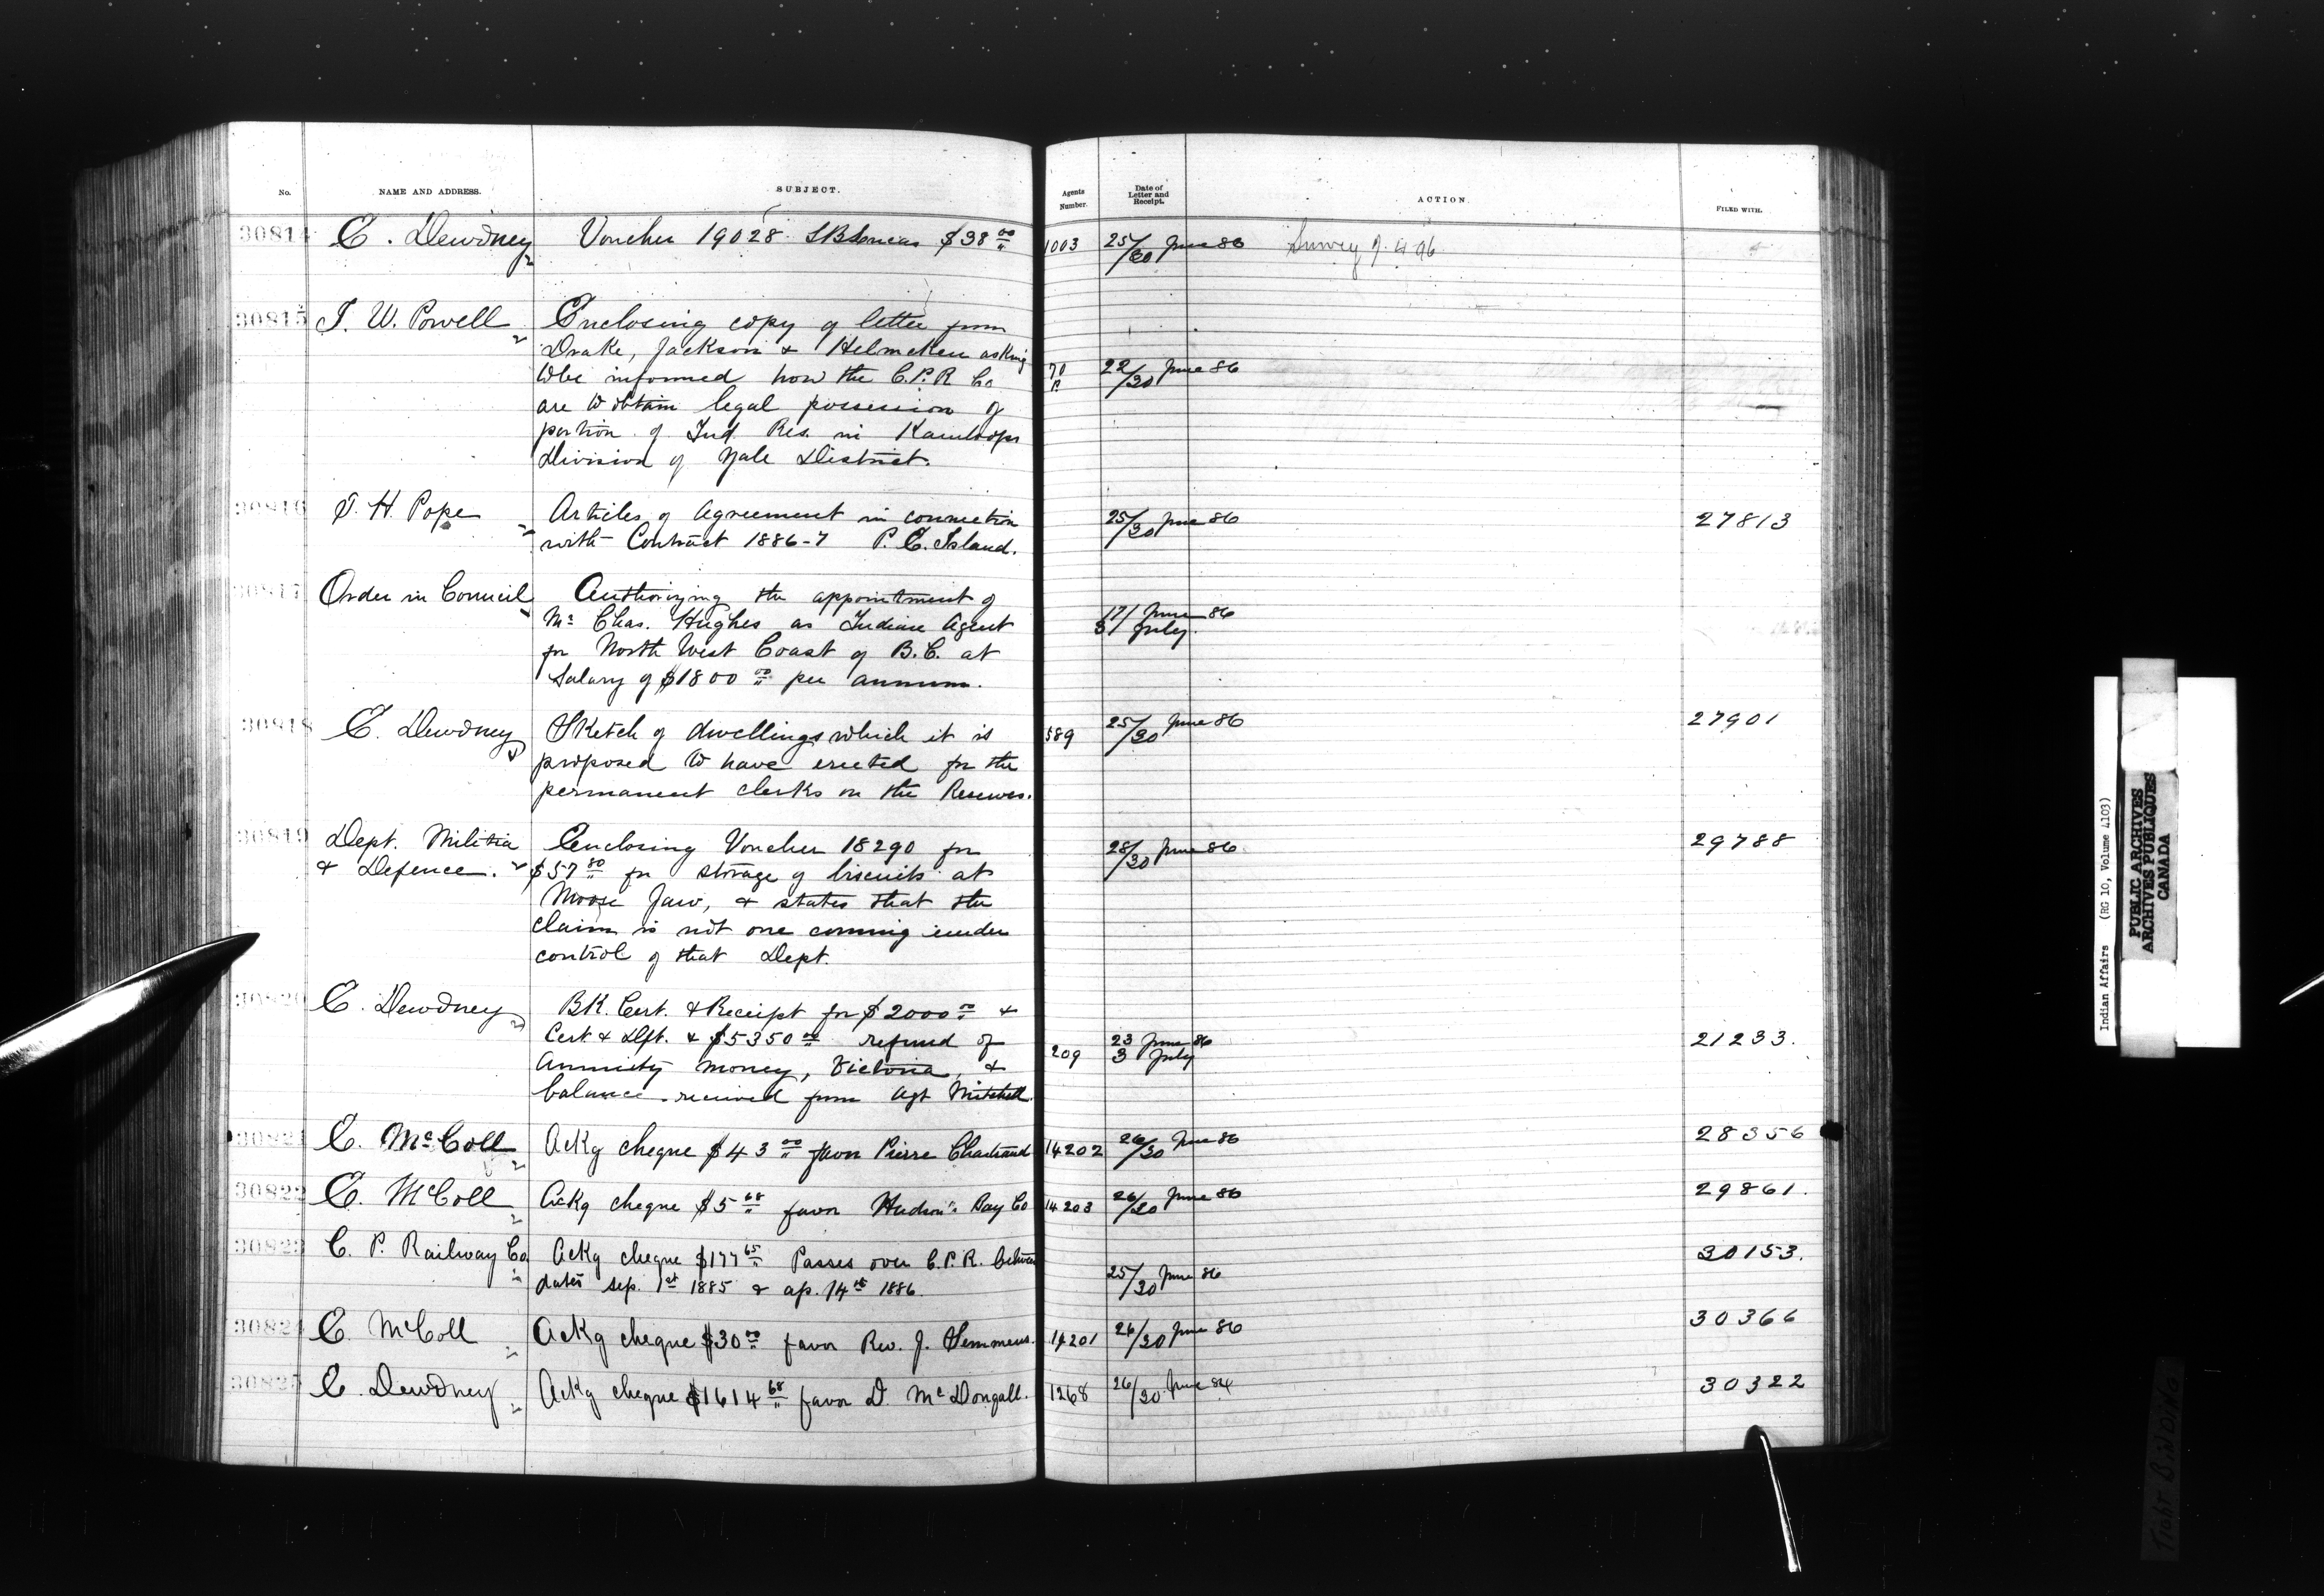 No. NAME AND ADDRESS. SUBJECT. Agents Number. Date of Letter and Receipt. ACTION. FILED WITH.
30814 E. Dewdney Voucher 19028 $38 00 1003 25/30 June 86 Survey
30815 I. W. Powell Enclosing copy of letter from
Drake, Jackson & Helmcken asking
to be informed how the C.P.R Co 70 22/30 June 86
are to obtain legal possession of
portion of Ind. Res. in Kamloops
Division of Yale District.
30816 J. H. Pope Articles of Agreement in connection 25/30 June 86 27813
with Contract 1886-7 P. E. Island.
30817 Order in Council Authorizing the appointment of
Mr Chas. Hughes as Indian Agent 17/ June 86
for North West Coast of B.C. at 3/ July.
Salary of $1800 00 per annum.
30818 E. Dewdney Sketch of dwellings which it is 589 25/30 June 86 27901
proposed to have erected for the
permanent clerks on the Reserves.
30819 Dept. Militia Enclosing Voucher 18290 for 28/30 June 86 29788
& Defence. $57 80 for storage of biscuits at
Moose Jaw, & states that the
claim is not one coming under
control of that Dept.
30820 E. Dewdney BK. Cert. & Receipt for $2000 00 &
Cert & Dft. & $5350 00 refund of 209 23 June 86 21233.
Annuity money, Victoria, & 3 July
balance received from Agt Mitchell
30821 E. McColl Ackg cheque $43 00 favor Pierre Chartrand 14202 26/30 June 86 28356
30822 E. McColl Ackg cheque $5 68 favor Hudson's Bay Co 14203 26/30 June 86 29861.
30823 C. P. Railway Co Ackg cheque $177 65 Passes over C.P.R. between 30153.
dates Sep. 1st 1885 & ap. 14th 1886. 25/30 June 86
30824 E. McColl Ackg cheque $30 00 favor Rev. J. Semmens. 14201 26/30 June 86 30366
30825 E. Dewdney Ackg cheque $1614 68 favor D. McDougall. 1268 26/30 June 86 30322
Indian Affairs (RG 10, Volume 4103)
PUBLIC ARCHIVES
ARCHIVES PUBLIQUES
CANADA
Tight Binding